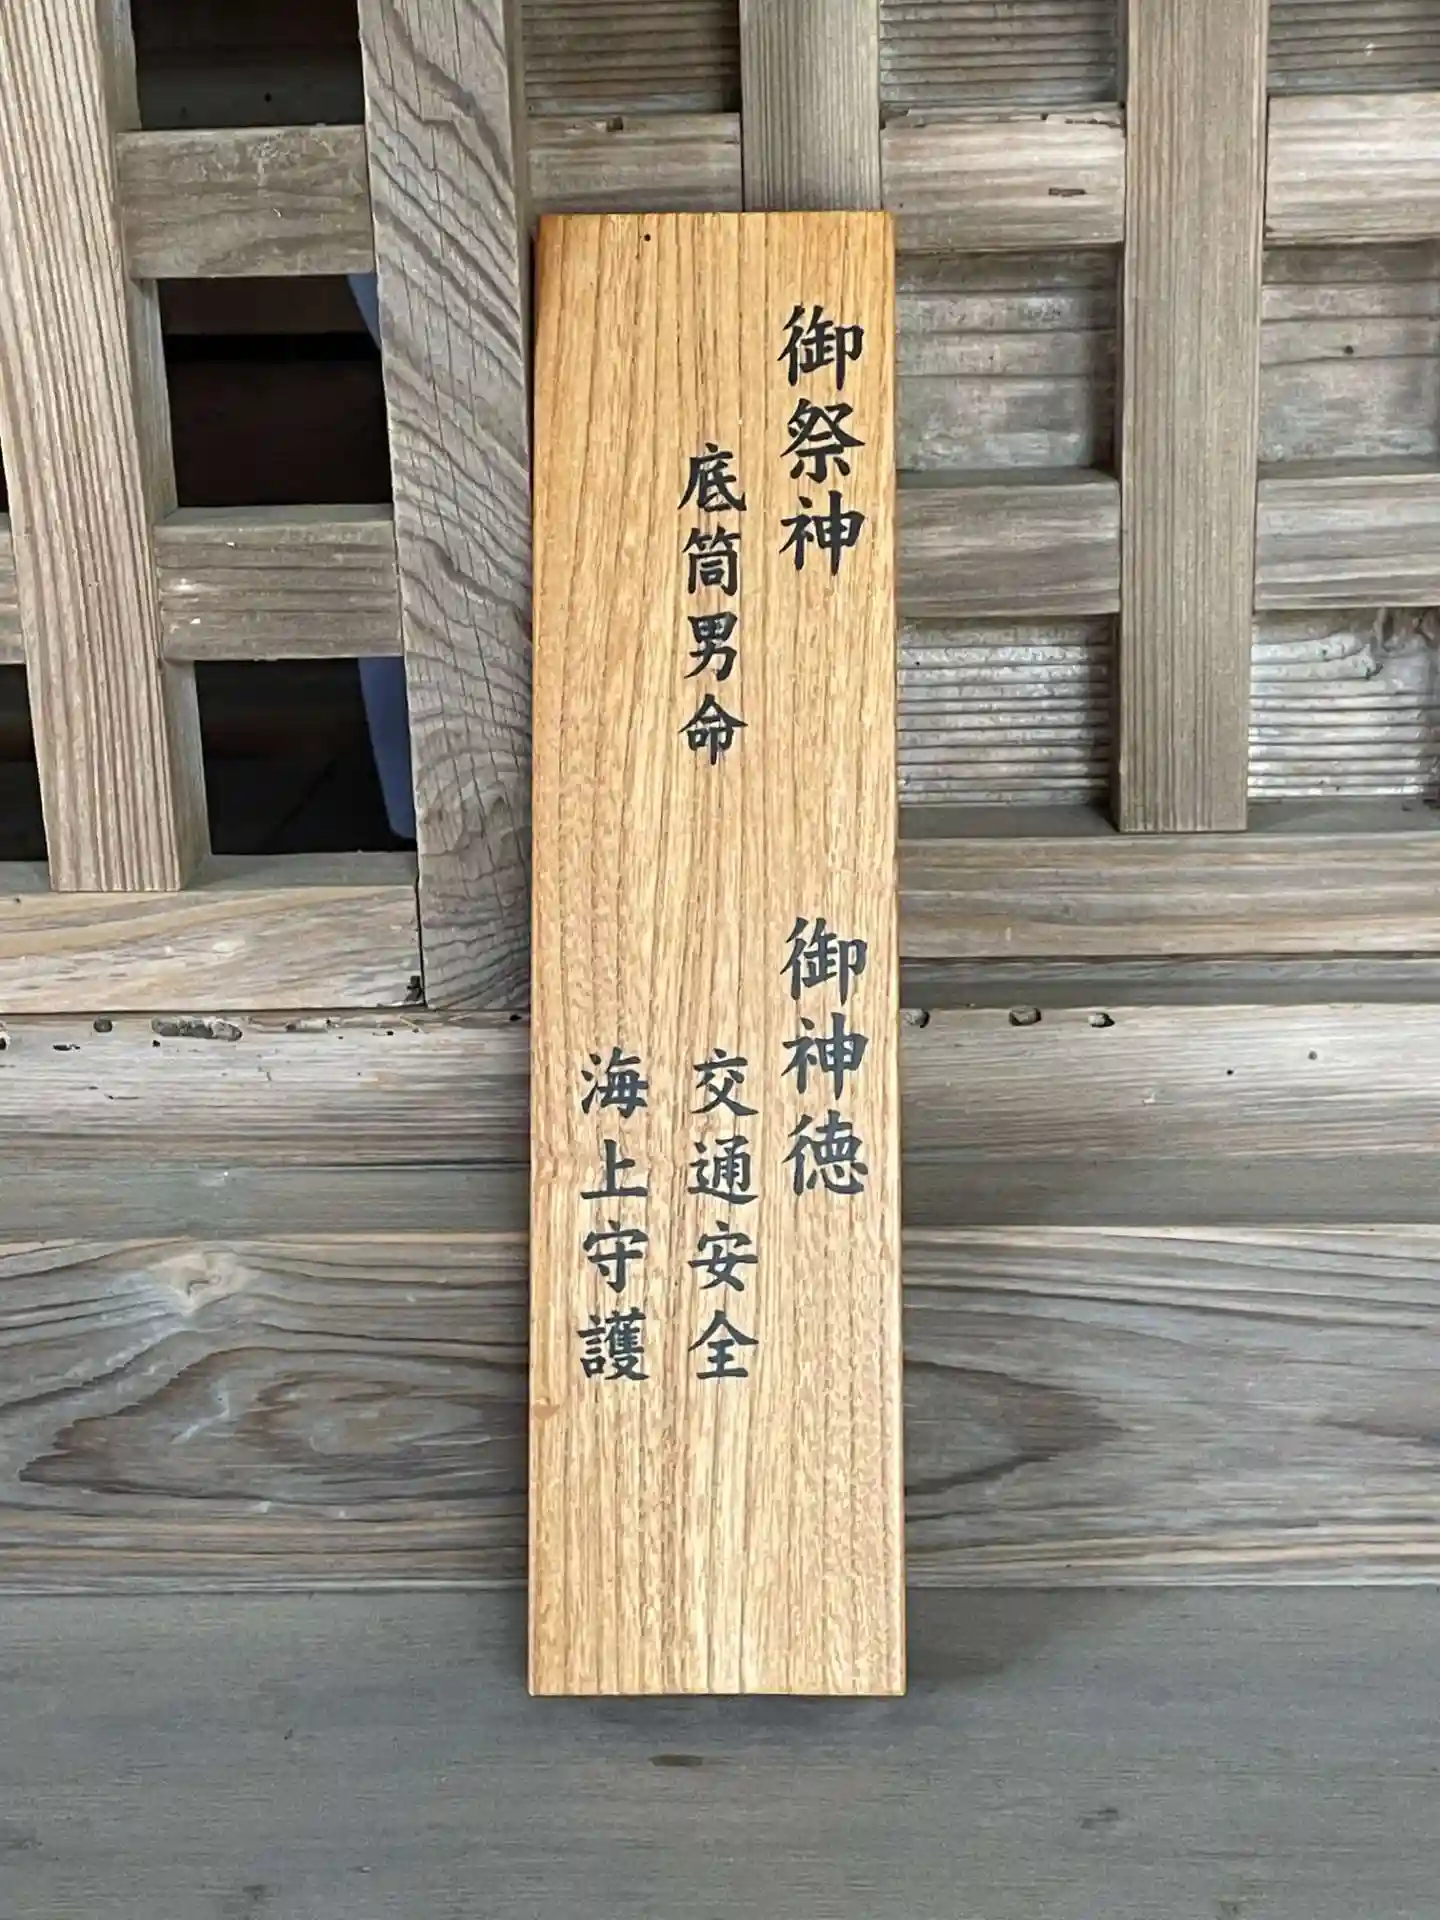 御祭神
底筒男命
御神徳
交通安全
海上守護